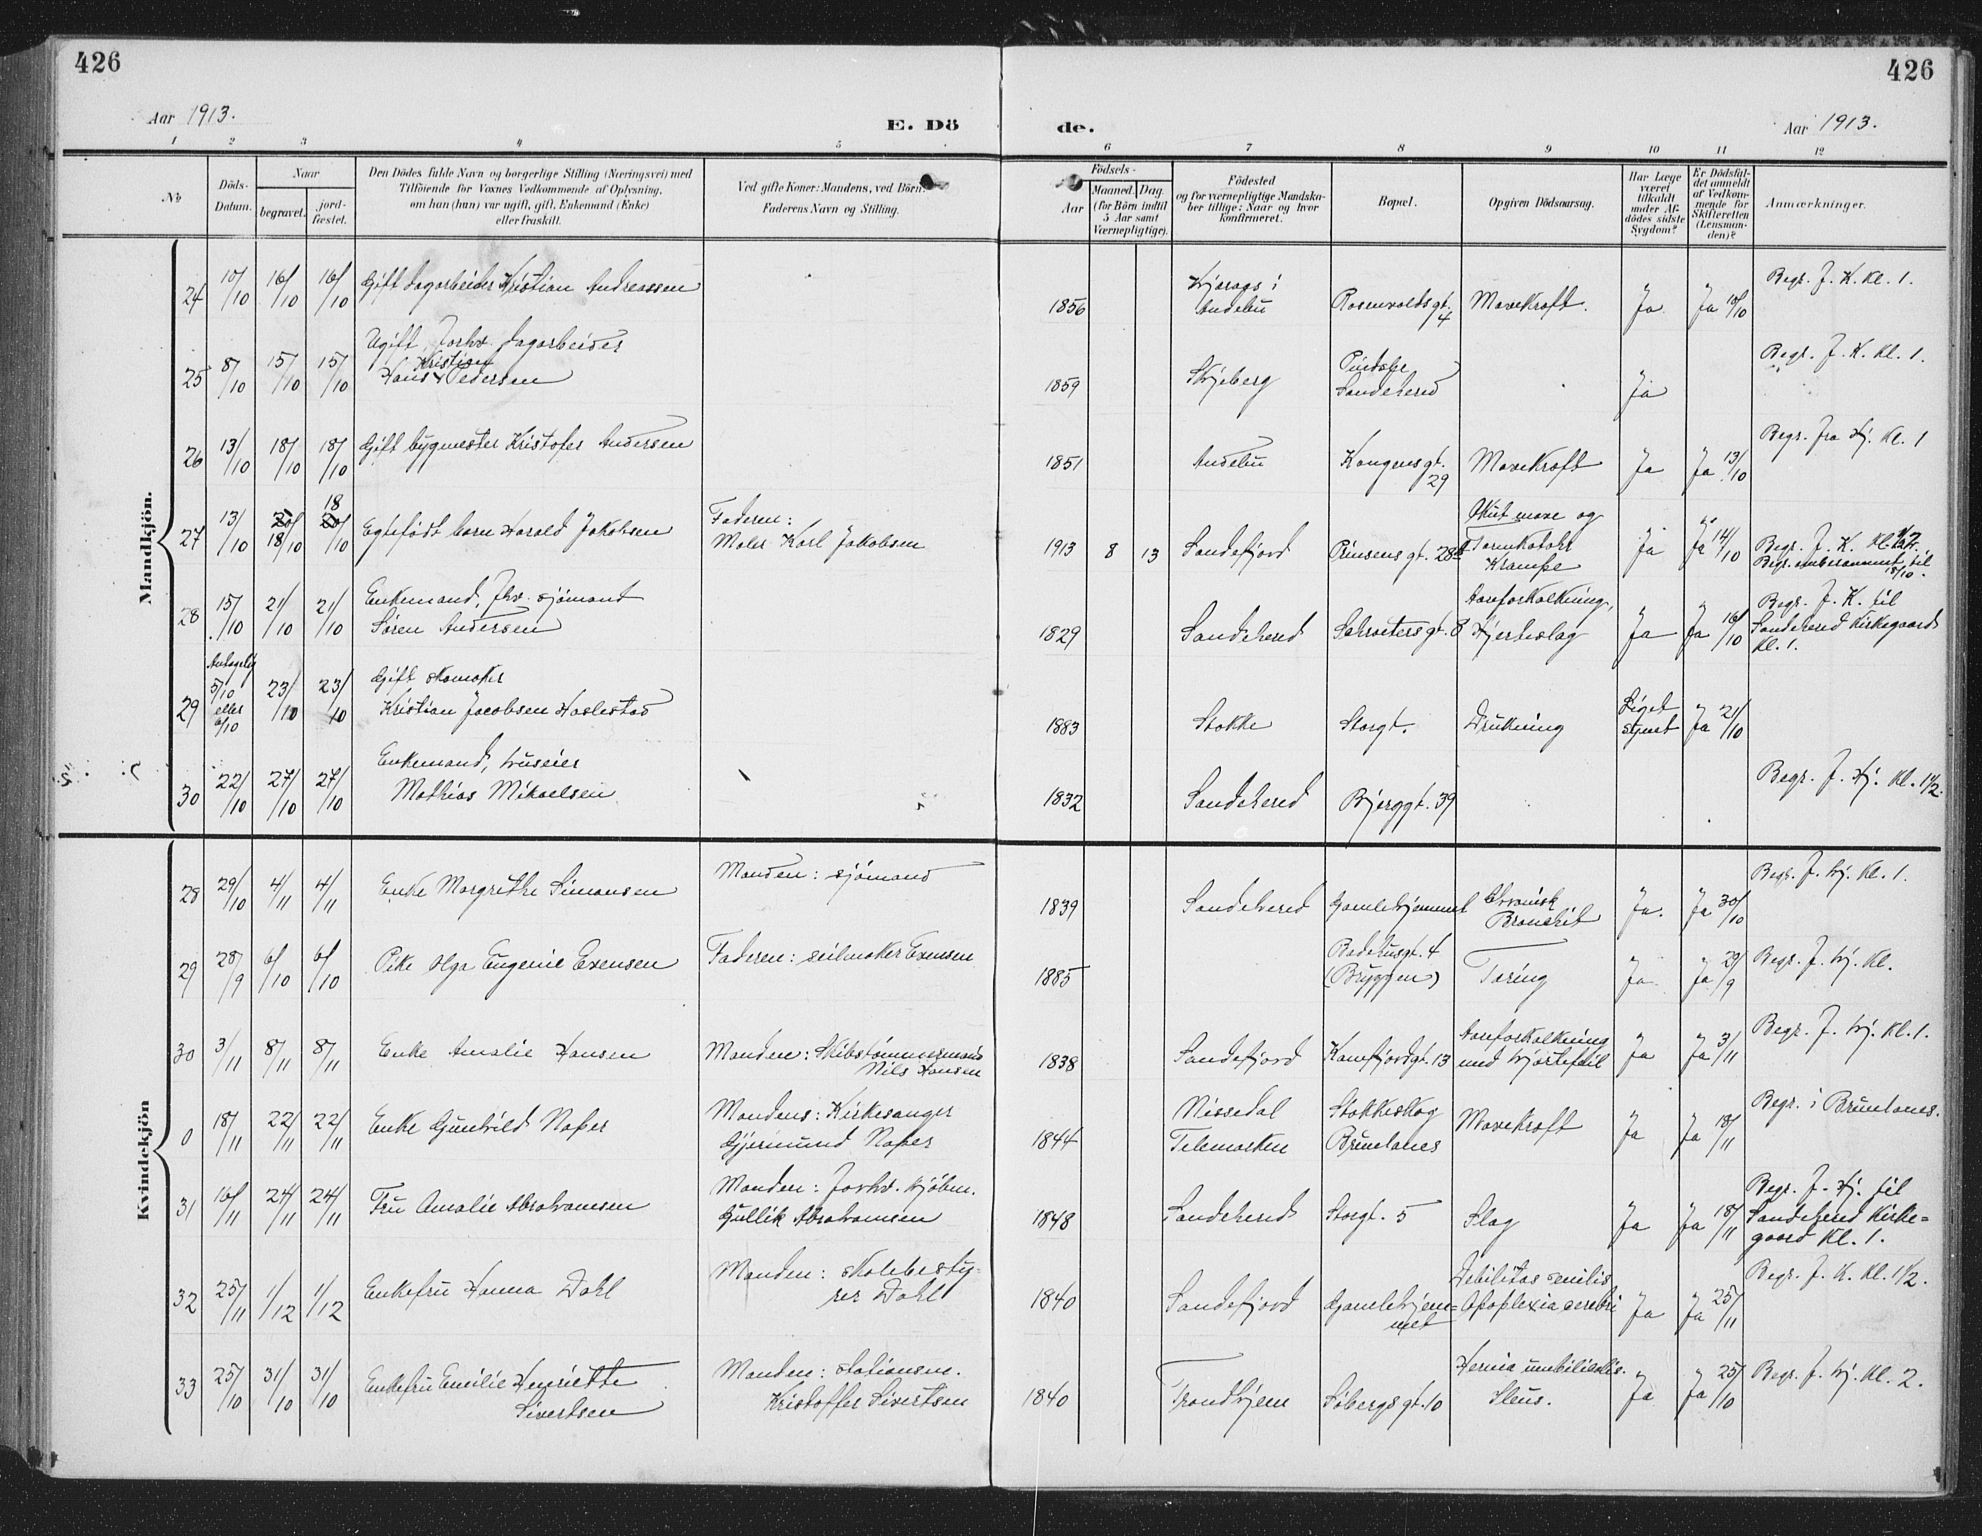 426
426
Aar 1913.
E. Dö
de.
Aar 1913.
1 2 3 4 5 6 7 8 9 10 11 12
No
Döds-Datum.
Naar
begravet.
jord-fæstet.
Den Dödes fulde Navn og borgerlige Stilling (Næringsvei) med
Tilföiende for Voxnes Vedkommende af Oplysning,
om han (hun) var ugift, gift, Enkemand (Enke)
eller fraskilt.
Ved gifte Koner: Mandens, ved Börn:
Faderens Navn og Stilling.
Födsels-
Aar
Maaned.
Dag.
(for Börn indtil
5 Aar samt
Værnepligtige).
Födested
og for værnepligtige Mandska-
ber tillige: Naar og hvor
konfirmeret.
Bopæl.
Opgiven Dödsaarsag.
Har Læge
været
tilkaldt
under Af-
dödes sidste
Sygdom?
Er Dödsfal-
det anmeldt
af Vedkom-
mende for
Skifteretten
(Lensman-
den)?
Anmærkninger.
Mandkjön.
24 10/10 16/10 16/10 Gift dagarbeider Kristian Andreassen 1856 i Andebu Rosenvoldsgt. 4 Mavekræft. Ja Ja 10/10 Begr. f. K. Kl. 1.
25 8/10 15/10 15/10 Ugift, forhv. dagarbeider
Hans Kristian Pedersen 1859 Skjeberg Pindsle Sandeherred Ja Begr. f. K. Kl. 1.
26 13/10 18/10 18/10 Gift bygmester Kristofer Andersen 1851 Andebu Kongensgt. 29 Mavekræft Ja Ja 13/10 Begr. fra Hj. Kl. 1
27 13/10 20/10 18/10 20/10 18 Egtefødt barn Harald Jakobsen Faderen:
Maler Karl Jakobsen 1913 8 13 Sandefjord Prinsensgt. 28 Akut mave og
Tarmkatarh
Krampe Ja Ja 14/10 Begr. f. K. Kl. 1/2
Begr. omberammet til 18/10.
28 15/10 21/10 21/10 Enkemand, fhv. sjömand
Sören Andersen 1829 Sandeherred Schroetersgt. 8 Aareforkalkning,
Hjerteslag Ja Ja 16/10 Begr. f. K. til
Sandeherred Kirkegaard
Kl. 1.
29 Antagelig
5/10
eller
6/10 23/10 23/10 Gift skomaker
Kristian Jacobsen Haslestad 1883 Stokke Storgt. Drukning Liget
synet Ja 21/10
30 22/10 27/10 27/10 Enkemand, huseier
Mathias Mikaelsen 1832 Sandeherred Bjerggt. 39 Begr. f. Hj. Kl. 1 1/2.
Kvindekjön
28 29/10 4/11 4/11 Enke Margrethe Simonsen Manden: sjömand 1839 Sandeherred Gamlehjemmet Chronisk
Bronchit Ja. Ja 30/10 Begr. f. Hj. Kl. 1.
29 28/9 6/10 6/10 Pike Olga Eugenie Evensen Faderen: seilmaker Evensen 1885 Badehusgt. 4
(Bryggen) Tæring Ja. Ja 29/9 Begr. f. Hj. Kl.
30 3/11 8/11 8/11 Enke Amalie Hansen Manden: Skibstømmermand
Nils Hansen 1838 Sandefjord Kamfjordgt. 13 Aareforkalkning
med hjertefeil Ja Ja 3/11 Begr. f. Hj. Kl. 1.
0 18/11 22/11 22/11 Enke Gunhild Naper Mandens: Kirkesanger
Gjermund Naper 1844 Nissedal
Telemarken Stokkeskog
Brunlanes Mavekræft Ja Ja 18/11 Begr. i Brunlanes.
31 16/11 24/11 24/11 Fru Amalie Abrahamsen Manden: Forhv. kjöbm.
Gullik Abrahamsen 1848 Sandeherred Storgt. 5 Slag Ja Ja 18/11 Begr. f. Hj. til
Sandeherred Kirke=
gaard Kl. 1.
32 25/11 1/12 1/12 Enkefru Hanna Dahl Manden: skolebesty-
rer Dahl 1840 Sandefjord Gamlehjem=
met Debilitas senilis
Apoplexia cerebri Ja Ja 25/11 Begr. f. K. Kl. 1 1/2.
33 25/10 31/10 31/10 Enkefru Emilie Henriette
Sivertsen Manden: stationsm.
Kristoffer Sivertsen 1840 Trondhjem Söbergsgt. 10 Hernia umbilicalis.
Ileus. Ja Ja 25/10 Begr. f. Hj. Kl. 2.